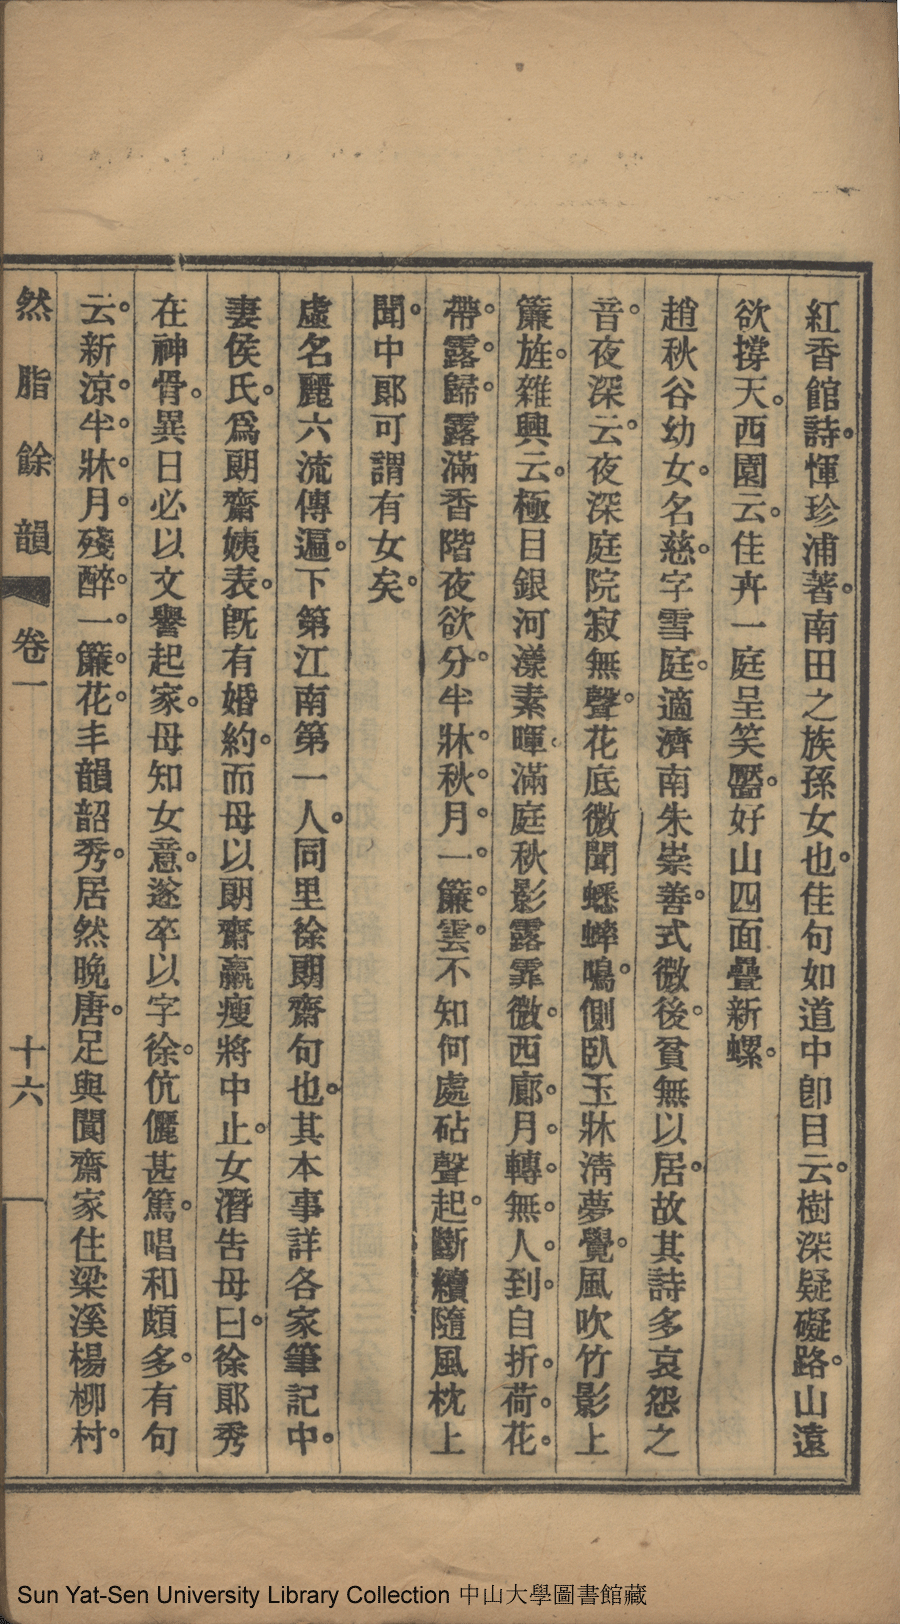 紅香館詩。惲珍浦著。南田之族孫女也。佳句如道中卽目云。樹深疑礙路。山遠
欲撐天。西園云。佳卉一庭呈笑靨。好山四面疊新螺。
趙秋谷幼女。名慈。字雪庭。適濟南朱崇善。式微後。貧無以居。故其詩多哀怨之
音。夜深云。夜深庭院寂無聲。花底微聞蟋蟀鳴。側臥玉牀淸夢覺。風吹竹影上
簾旌。雜興云。極目銀河漾素暉。滿庭秋影露霏微。西廊。月。轉。無。人。到。自折。荷。花。
帶。露。歸。露滿香階夜欲分。半牀。秋。月。一。簾。雲。不知何處砧聲起。斷續隨風枕上
聞。中郞可謂有女矣。
虛名麗六流傳遍。下第江南第一人。同里徐朗齋句也。其本事詳各家筆記中。
妻侯氏。爲朗齋姨表。旣有婚約。而母以朗齋羸瘦將中止。女潛吿母曰。徐郞秀
在神骨。異日必以文譽起家。母知女意。遂卒以字徐。伉儷甚篤。唱和頗多。有句
云。新涼。半。牀。月。殘醉。一。簾。花。丰韻韶秀。居然晚唐。足與閬齋家住梁溪楊柳村。
然脂餘韻 卷一 十六
Sun Yat-Sen University Library Collection 中山大學圖書館藏